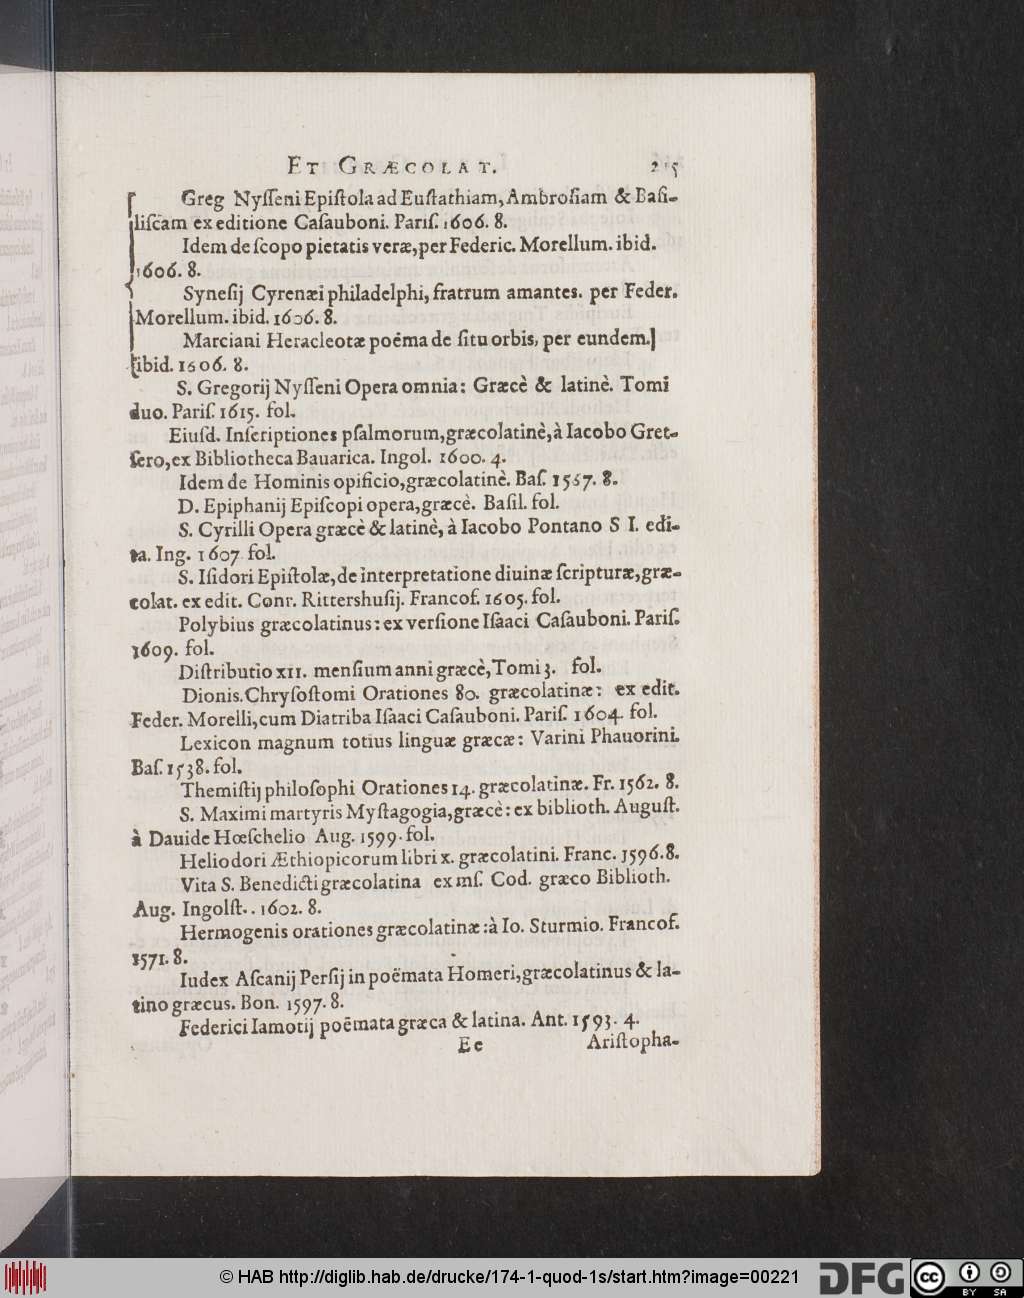 ET GRÆCOLAT. 215
Greg Nyſſeni Epiſtola ad Euſtathiam, Ambroſiam & Baſi-
liſcam ex editione Caſauboni. Pariſ. 1606. 8.
Idem de ſcopo pietatis veræ, per Federic. Morellum. ibid.
1606. 8.
Syneſij Cyrenæi philadelphi, fratrum amantes. per Feder.
Morellum. ibid. 1606. 8.
Marciani Heracleotæ poëma de ſitu orbis, per eundem.]
ibid. 1606. 8.
S. Gregorij Nyſſeni Opera omnia: Græcè & latinè. Tomi
duo. Pariſ. 1615. fol.
Eiuſd. Inſcriptiones pſalmorum, græcolatinè, à Iacobo Gret-
ſero, ex Bibliotheca Bauarica. Ingol. 1600. 4.
Idem de Hominis opificio, græcolatinè. Baſ. 1567. 8.
D. Epiphanij Epiſcopi opera, græcè. Baſil. fol.
S. Cyrilli Opera græcè & latinè, à Iacobo Pontano S I. edi-
ta. Ing. 1607. fol.
S. Iſidori Epiſtolæ, de interpretatione diuinæ ſcripturæ, græ-
colat. ex edit. Conr. Rittershuſij. Francof. 1605. fol.
Polybius græcolatinus: ex verſione Iſaaci Caſauboni. Pariſ.
1609. fol.
Diſtributio XII. menſium anni græcè, Tomi 3. fol.
Dionis. Chryſoſtomi Orationes 80. græcolatinæ: ex edit.
Feder. Morelli, cum Diatriba Iſaaci Caſauboni. Pariſ. 1604. fol.
Lexicon magnum totius linguæ græcæ: Varini Phauorini.
Baſ. 1538. fol.
Themiſtij philoſophi Orationes 14. græcolatinæ. Fr. 1562. 8.
S. Maximi martyris Myſtagogia, græcè: ex biblioth. Auguſt.
à Dauide Hœſchelio Aug. 1599. fol.
Heliodori Æthiopicorum libri x. græcolatini. Franc. 1596. 8.
Vita S. Benedicti græcolatina ex mſ. Cod. græco Biblioth.
Aug. Ingolſt.. 1602. 8.
Hermogenis orationes græcolatinæ: à Io. Sturmio. Francof.
1571. 8.
Iudex Aſcanij Perſij in poëmata Homeri, græcolatinus & la-
tino græcus. Bon. 1597. 8.
Federici Iamotij poëmata græca & latina. Ant. 1593. 4.
Ee Ariſtopha-
© HAB http://diglib.hab.de/drucke/174-1-quod-1s/start.htm?image=00221
DFG
cc BY SA